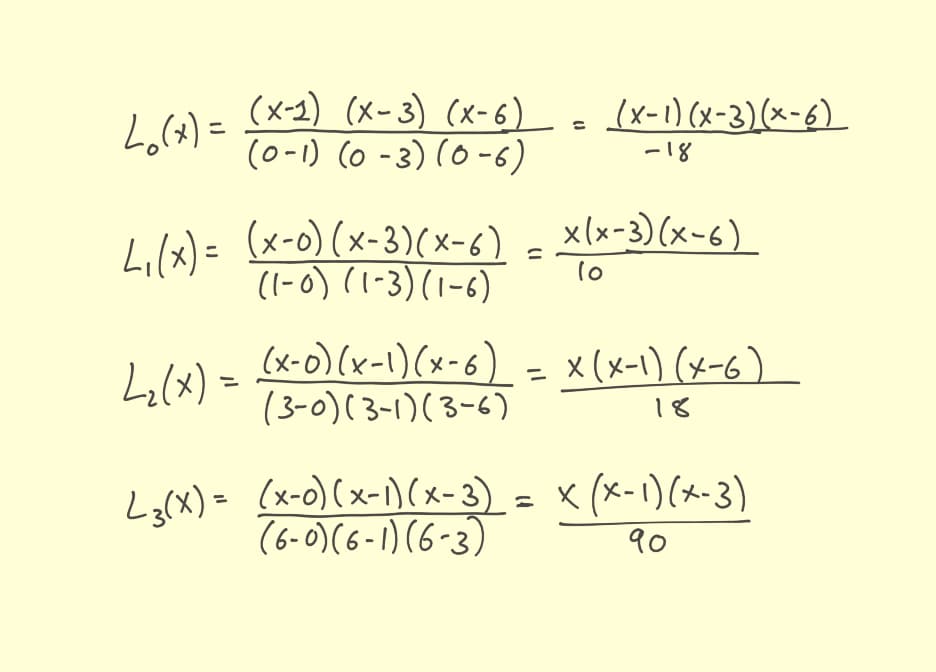 L₀(x) = (x-1) (x-3) (x-6) / (0-1) (0-3) (0-6) = (x-1)(x-3)(x-6) / -18
L₁(x) = (x-0)(x-3)(x-6) / (1-0) (1-3)(1-6) = x(x-3)(x-6) / 10
L₂(x) = (x-0)(x-1)(x-6) / (3-0)(3-1)(3-6) = x(x-1)(x-6) / 18
L₃(x) = (x-0)(x-1)(x-3) / (6-0)(6-1)(6-3) = x(x-1)(x-3) / 90